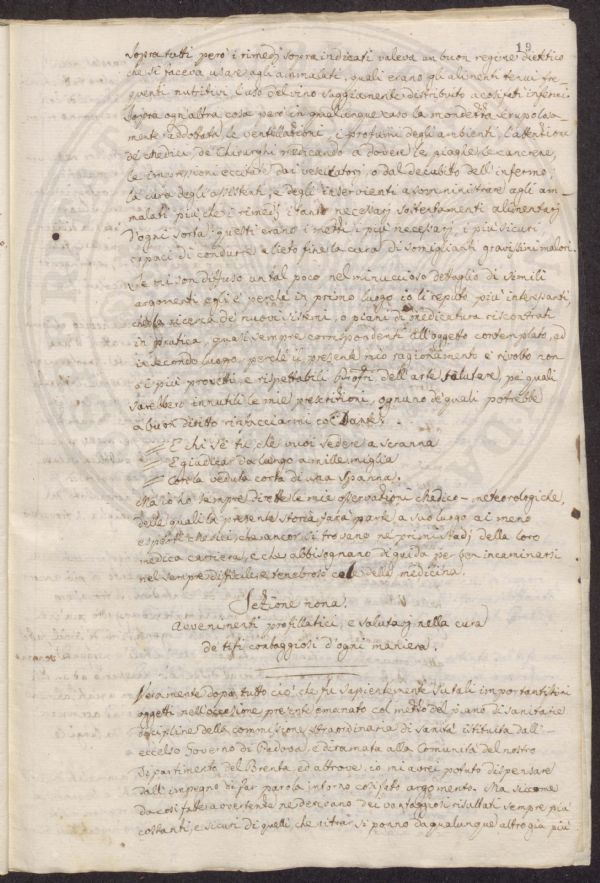 19
Sopra tutti però i rimedj sopraindicati valeva un buon regime dietetico
che si faceva usare agli ammalati, quali erano gli alimenti tenui fre-
quenti nutritivi, l'uso del vino saggiamente distributo a cosifati infermi
Sopra ogn'altra cosa però in qualunque caso la mondezza scrupolosa-
mente addobata, le ventillazioni, i profumi degli ambienti, l'attenzione
de' Medici, de' Chirurghi medicando a dovere le piaghe, le cancrene,
le impressioni eccitate dai vescicatorj, o dal decubito dell'infermo;
la cura degli assistenti, e degli inservienti a somministrare agli am-
malati più che i rimedj i tanto necessarj sostentamenti alimentarj
d'ogni sorta: questi erano i mezzi i più necessarj, i più sicuri
capaci di condurre a lieto fine la cura di somiglianti gravissimi malori.
Se mi son diffuso un tal poco nel minuccioso dettaglio di simili
argomenti egli è perchè in primo luogo io li reputo più interessanti,
che la ricerca de' nuovi sistemi, o piani di medicatura riscontrati
in pratica, quasi sempre correspondenti all'oggetto contemplato, ed
in secondo luogo, perchè il presente mio ragionamento è rivolto non
a i più provetti, e rispettabili Profri dell'arte salutare, pe' quali
sarebbero innutili le mie prescrizioni, ognuno de' quali potrebbe
a buon diritto rinfacciarmi col Dante
E chi sè tu, che vuoi sedere a scranna
E giudicar da lungo a mille miglia
Con la veduta corta di una spanna.
Ma io ho sempre dirette le mie osservazioni medico-meteorologiche,
delle quali la presente storia farà parte a suo luogo ai meno
esperti medici, che ancor si trovano ne' primi stadj della loro
medica carriera, e che abbisognano di guida per ben incaminarsi
nel sempre difficile, e tenebroso della medicina.
Sezione nona.
Avvenimenti profillatici, e salutarj nella cura
de tifi contaggiosi d'ogni maniera.
Veramente dopo tutto ciò che fu sapientemente su tali importantissimi
oggetti nell'occasione presente emanato col mezzo del piano di sanitarie
discipline della commissione straordinaria di sanità istituita dall'
eccelso Governo di Padova, e diramata alla Comunità del nostro
Dipartimento del Brenta, ed altrove, io mi avrei potuto dispensare
dall'impegno di far parola intorno cosifato argomento. Ma siccome
da cosifatte avvertenze ne derivano dei vantaggiosi risultati sempre più
costanti, e sicuri di quelli, che ritrar si ponno da qualunque altro già più